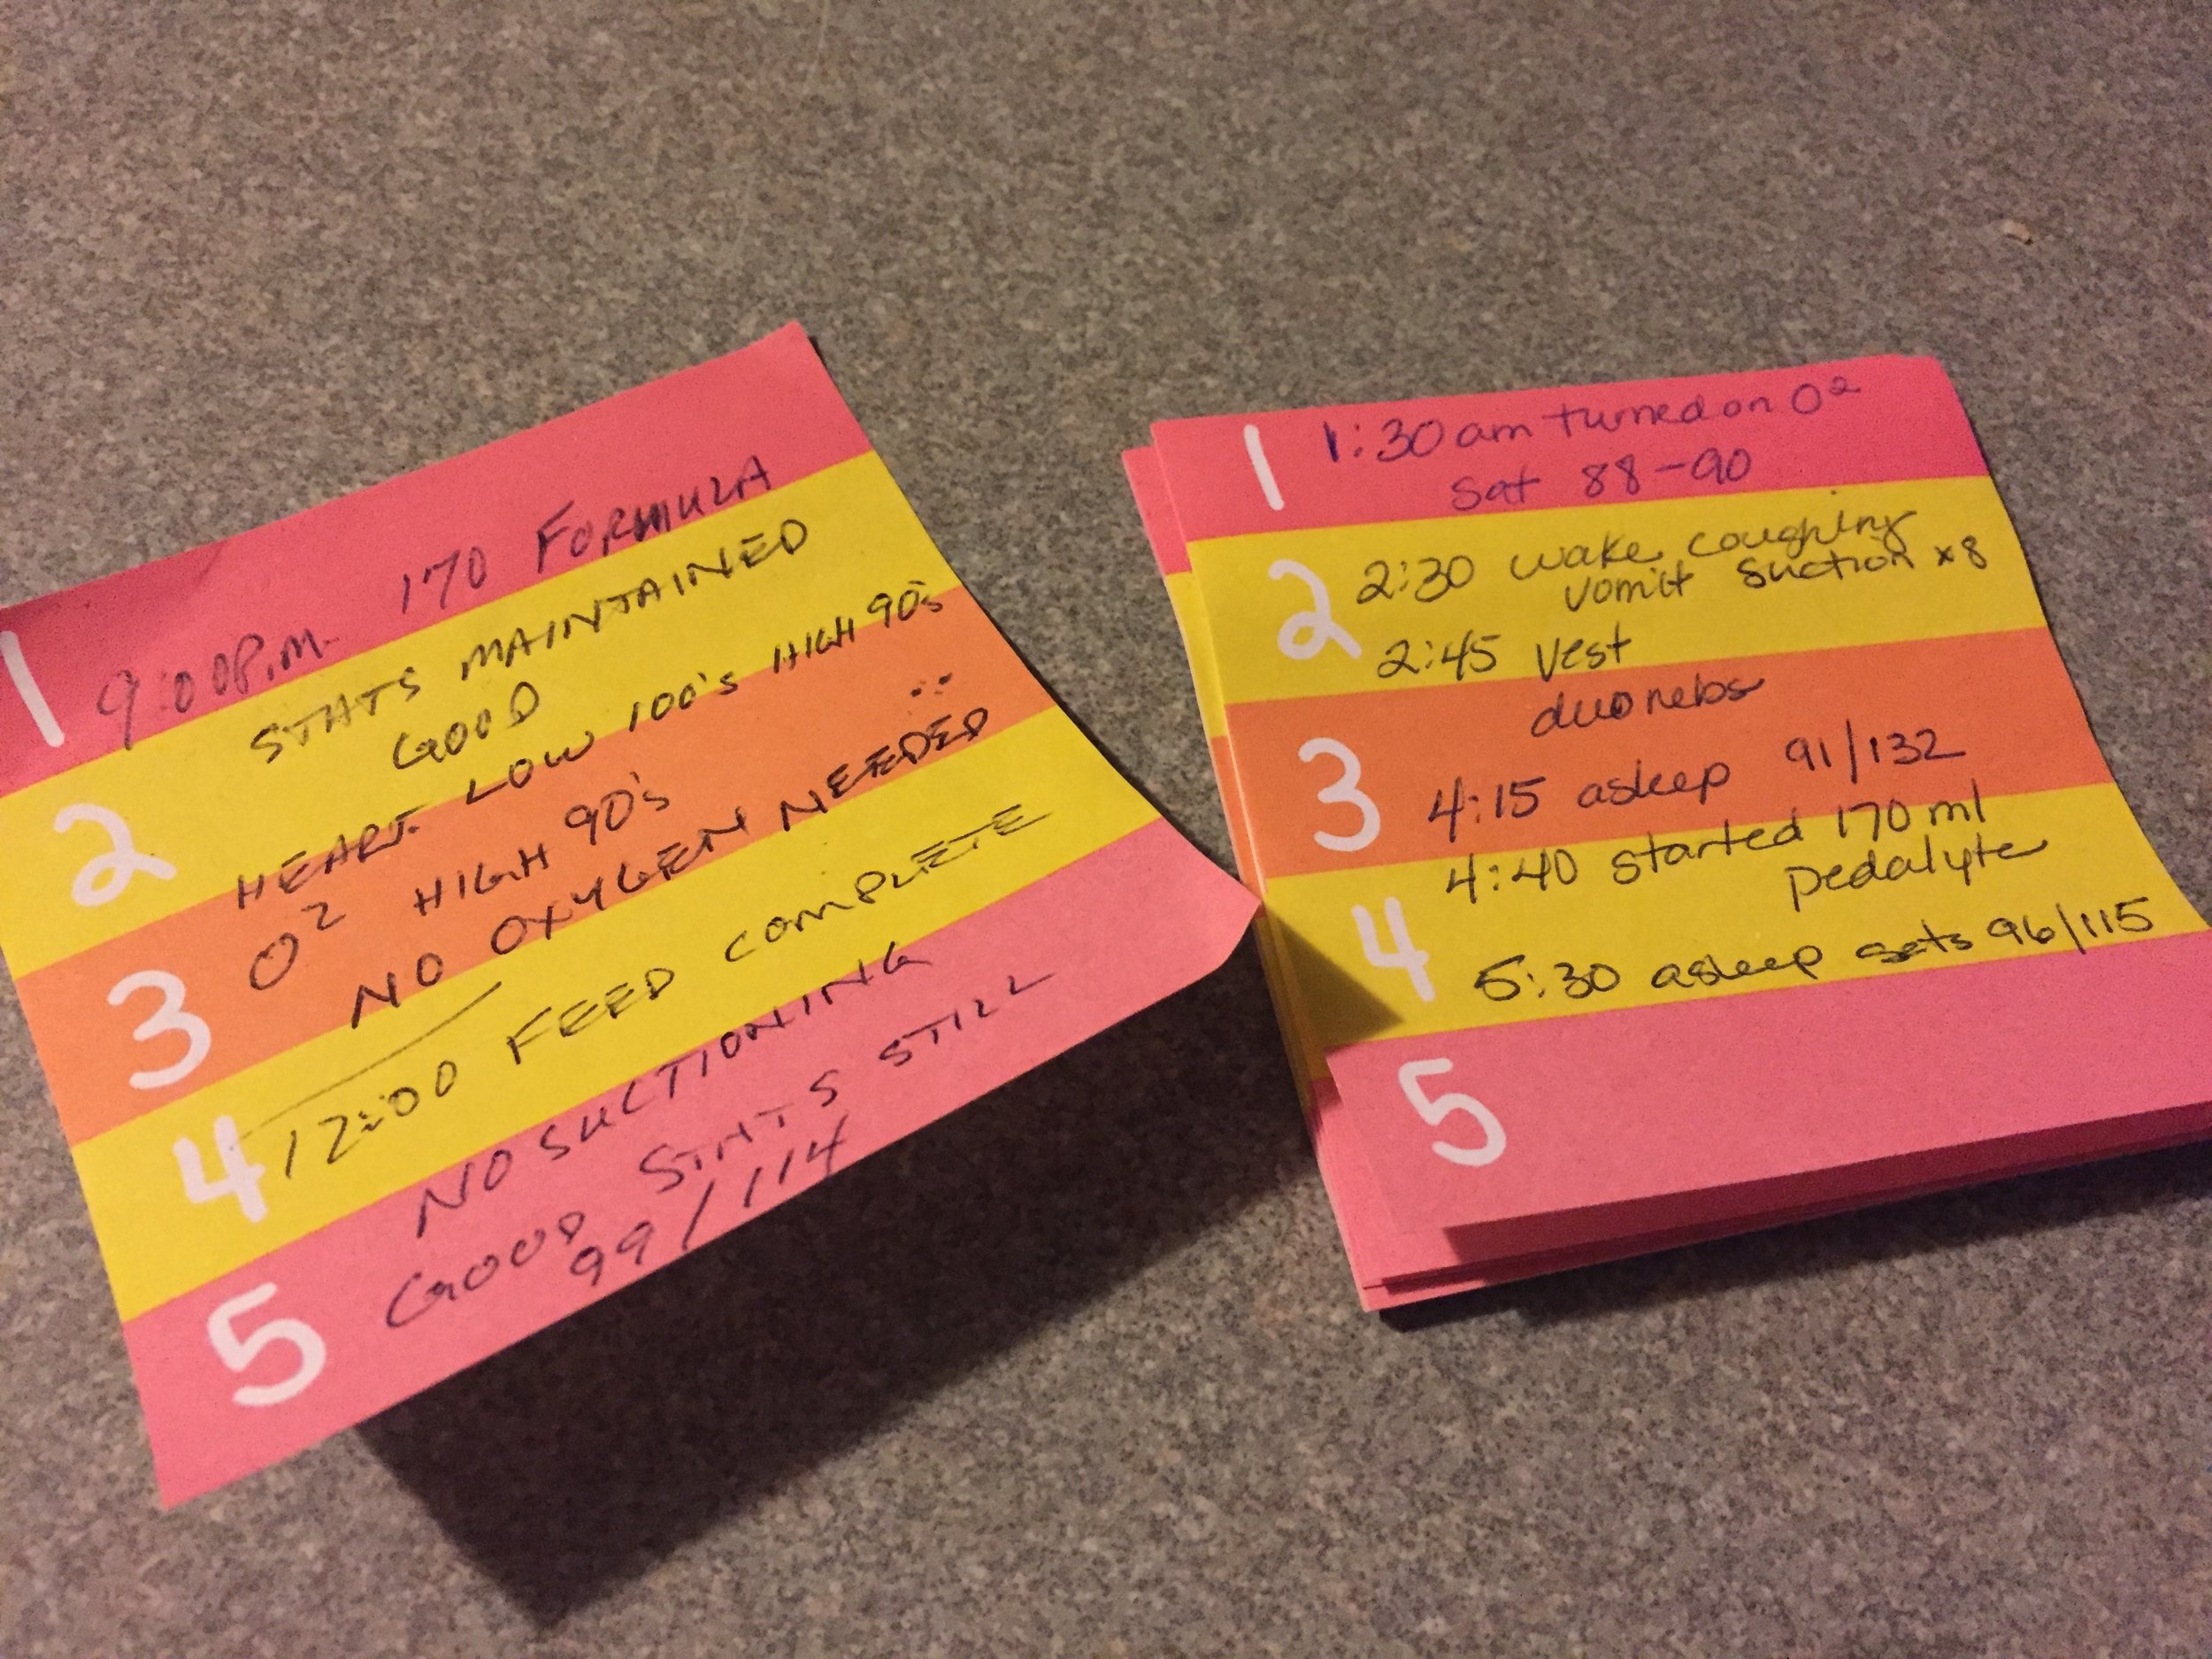 1 9:00 P.M. 170 FORMULA
2 STATS MAINTAINED
GOOD
HEART LOW 100's HIGH 90's
3 O2 HIGH 90's
NO OXYGEN NEEDED
4 12:00 FEED COMPLETE
NO SUCTIONING
5 GOOD STATS STILL
99/114
1 1:30 am turned on O2
Sat 88-90
2 2:30 wake coughing
vomit suction x8
2:45 vest
duonebs
3 4:15 asleep 91/132
4:40 started 170 ml
pedalyte
4 5:30 asleep sats 96/115
5